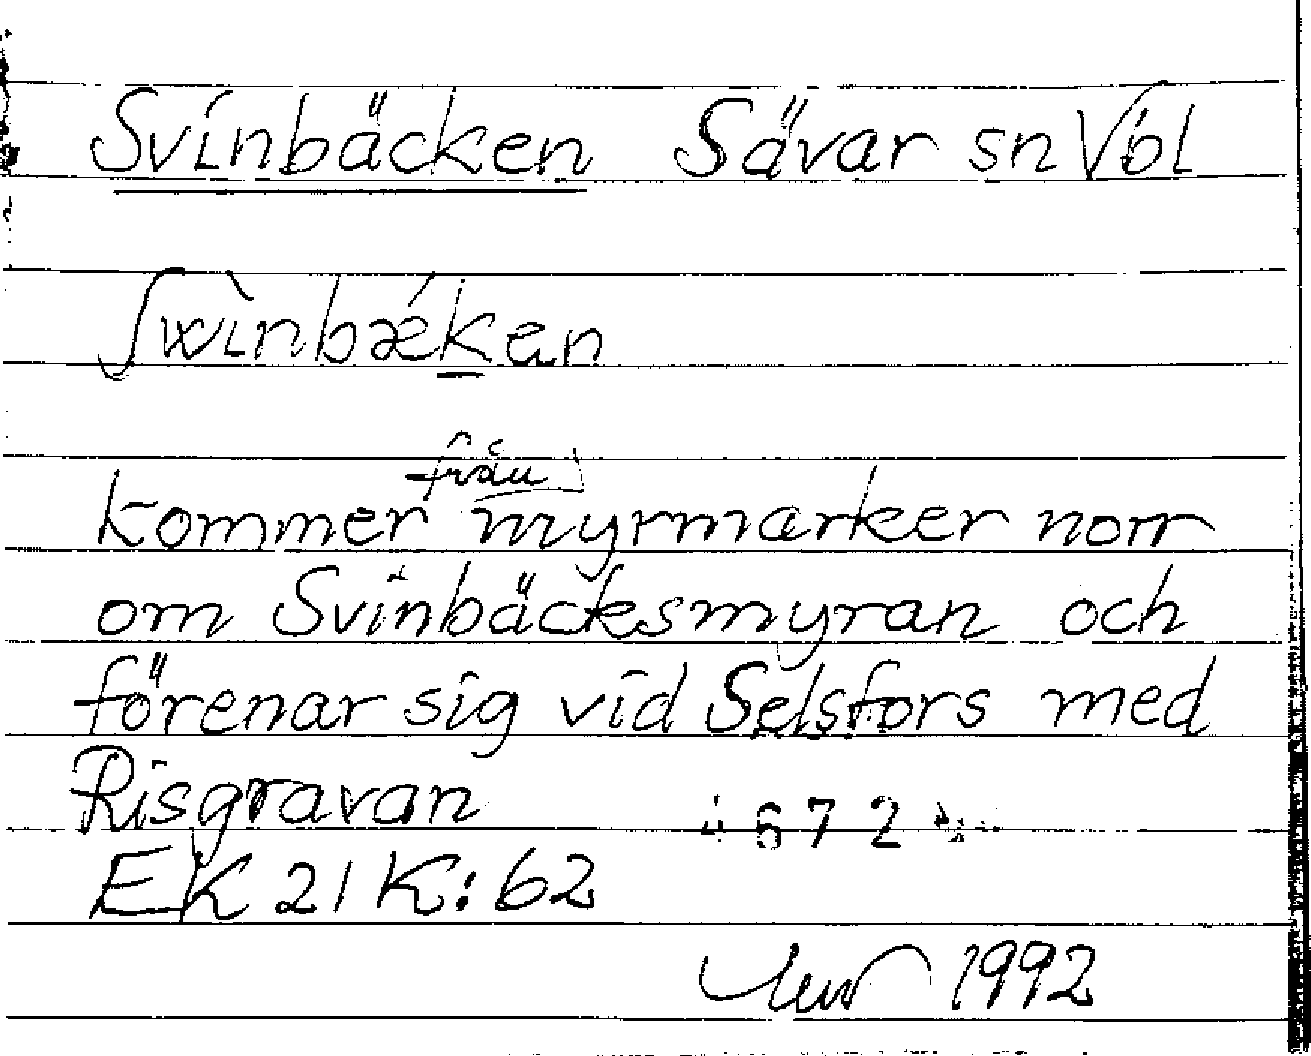 Svinbäcken Sävar sn Vbl
ʃwìnbǽken
kommer från myrmarker norr
om Svinbäcksmyran och
förenar sig vid Selsfors med
Risgravan
4672
EK 21 K:62
1992